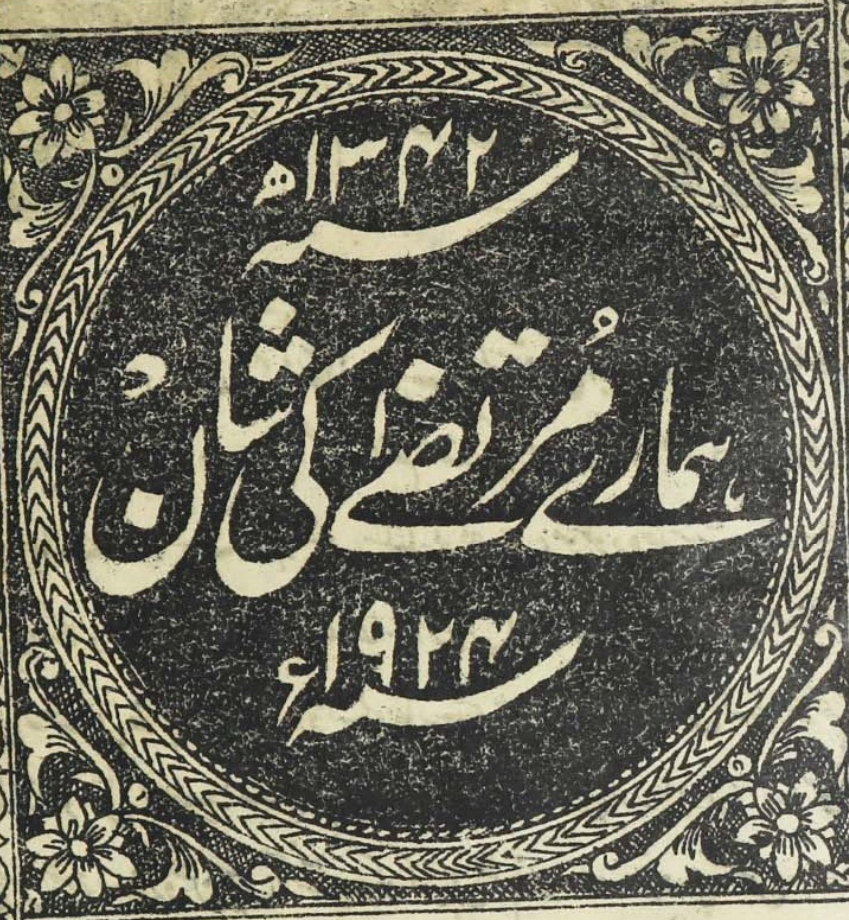 سنہ ۱۳۴۲ھ
ہمارے مُرتضےٰ کی شان
سنہ ۱۹۲۴ء